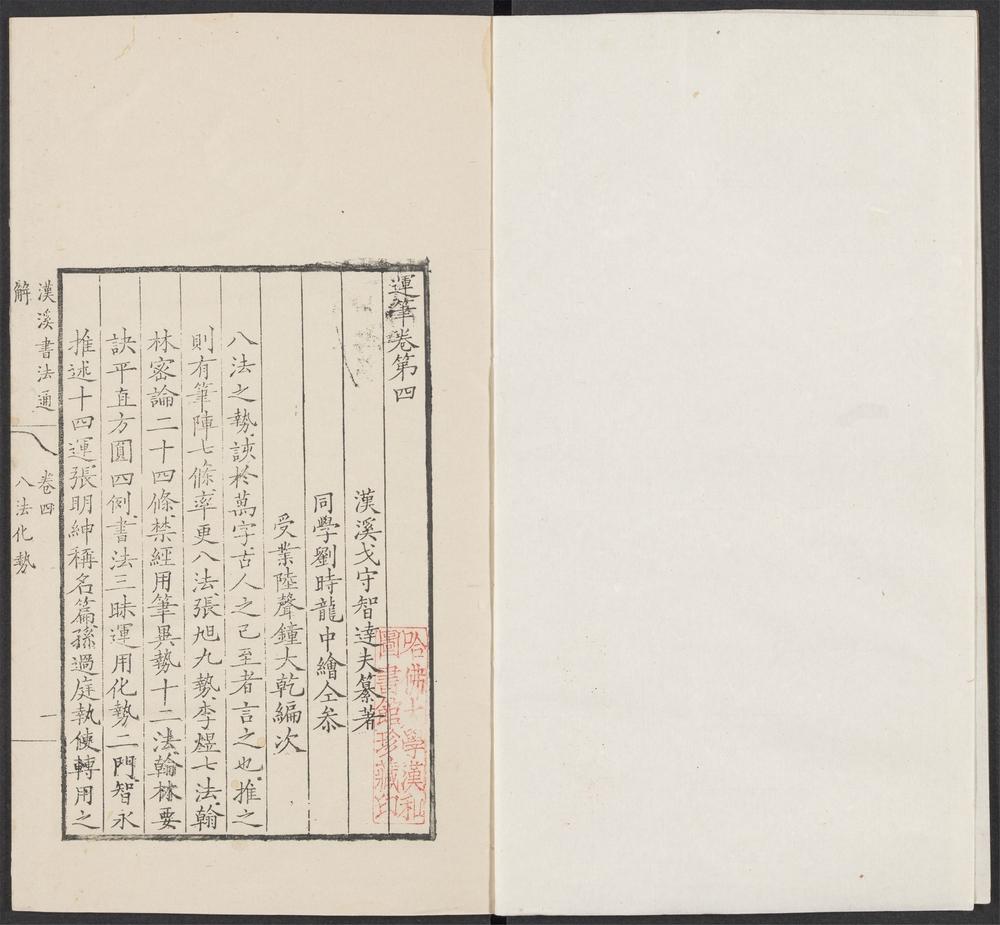 運筆卷第四
漢溪戈守智達夫纂著
同學劉時龍中繪仝叅
受業陸聲鐘大乾編次
八法之勢該於萬字古人之已至者言之也推之
則有筆陣七條率更八法張旭九勢李煜七法翰
林密論二十四條禁經用筆異勢十二法翰林要
訣平直方圓四例書法三昧運用化勢二門智永
推述十四運張明紳稱名篇孫過庭執使轉用之
漢溪書法通
解
卷四
八法化勢
一
哈佛大學漢和
圖書館珍藏印